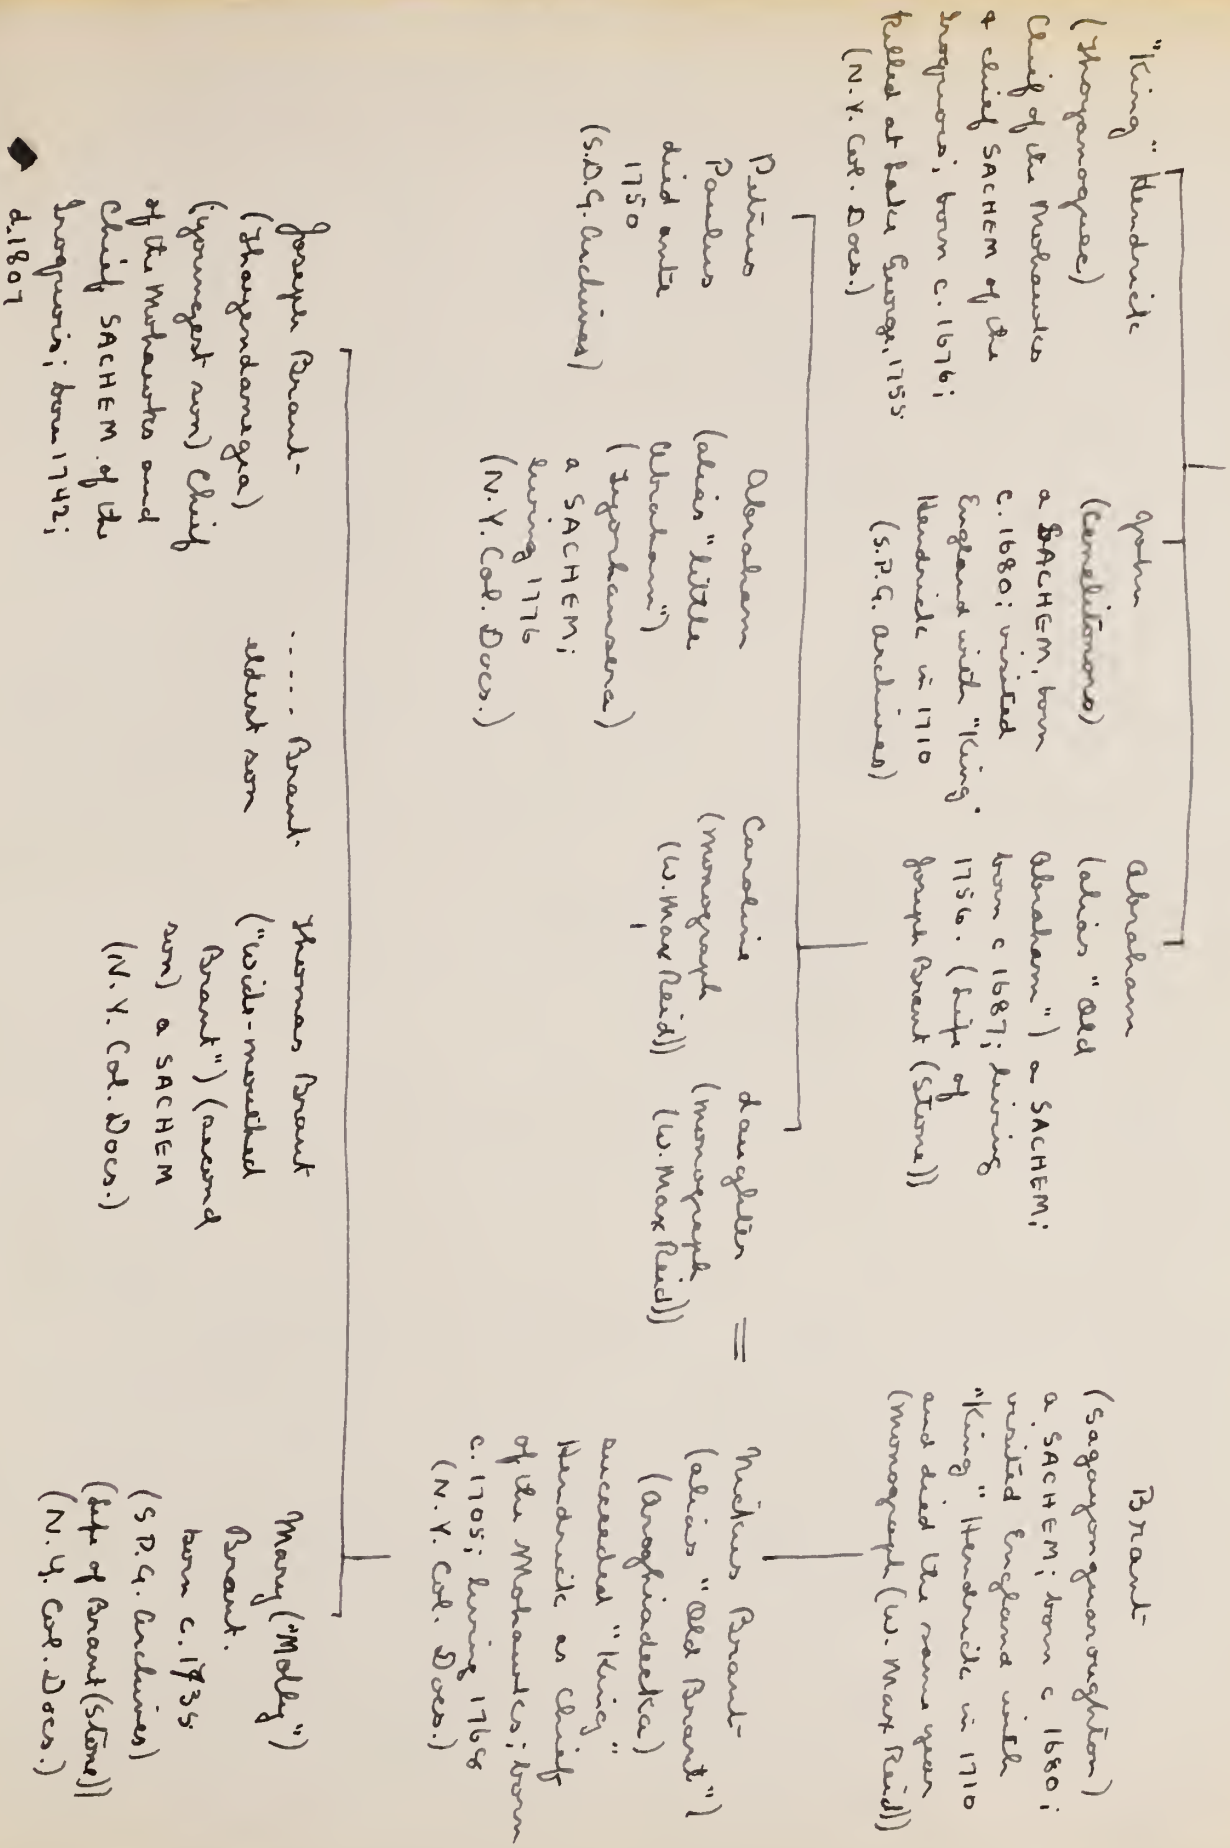 "King" Hendrick
(Thoyanoguec)
Chief of the Mohawks
& chief SACHEM of the
Iroquois; born c. 1676;
killed at Lake George, 1755.
(N.Y. Col. Docs.)
John
a SACHEM, born
c. 1680; visited
England with "King"
Hendrick in 1710
(S.P.G. Archives)
Abraham
(alias "Old
Abraham") a SACHEM;
born c 1687; living
1756. (Life of
Joseph Brant (Stone))
Brant
(Sagayonguaroughton)
a SACHEM; born c 1680;
visited England with
"King" Hendrick in 1710
and died the same year
(monograph (W. Max Reid))
Petrus
Paulus
died ante
1750
(S.P.G. Archives)
Abraham
(alias "little
Abraham")
(Tyorhansera)
a SACHEM;
living 1776
(N.Y. Col. Docs.)
Caroline
(monograph
(W. Max Reid))
daughter =
(monograph
(W. Max Reid))
Nickus Brant
(alias "Old Brant")
(Aroghiadecka)
succeeded "King"
Hendrick as Chief
of the Mohawks; born
c. 1705; living 1768
(N.Y. Col. Docs.)
Joseph Brant
(Thayendanegea)
(youngest son) Chief
of the Mohawks and
Chief SACHEM of the
Iroquois; born 1742;
d. 1807
.... Brant.
eldest son
Thomas Brant
("Wide-mouthed
Brant") (second
son) a SACHEM
(N.Y. Col. Docs.)
Mary ("Molly")
Brant.
born c. 1735.
(S.P.G. Archives)
(Life of Brant (Stone))
(N.Y. Col. Docs.)